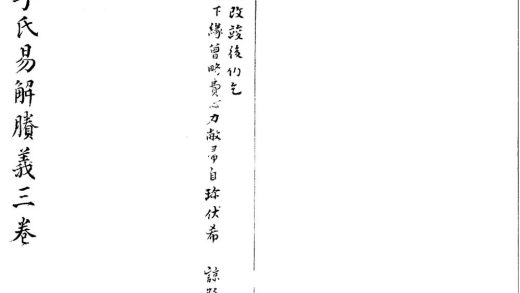 改竣後仍乞
下緣曾略費心力敝帚自珍伏希 諒
氏易解賸義三卷